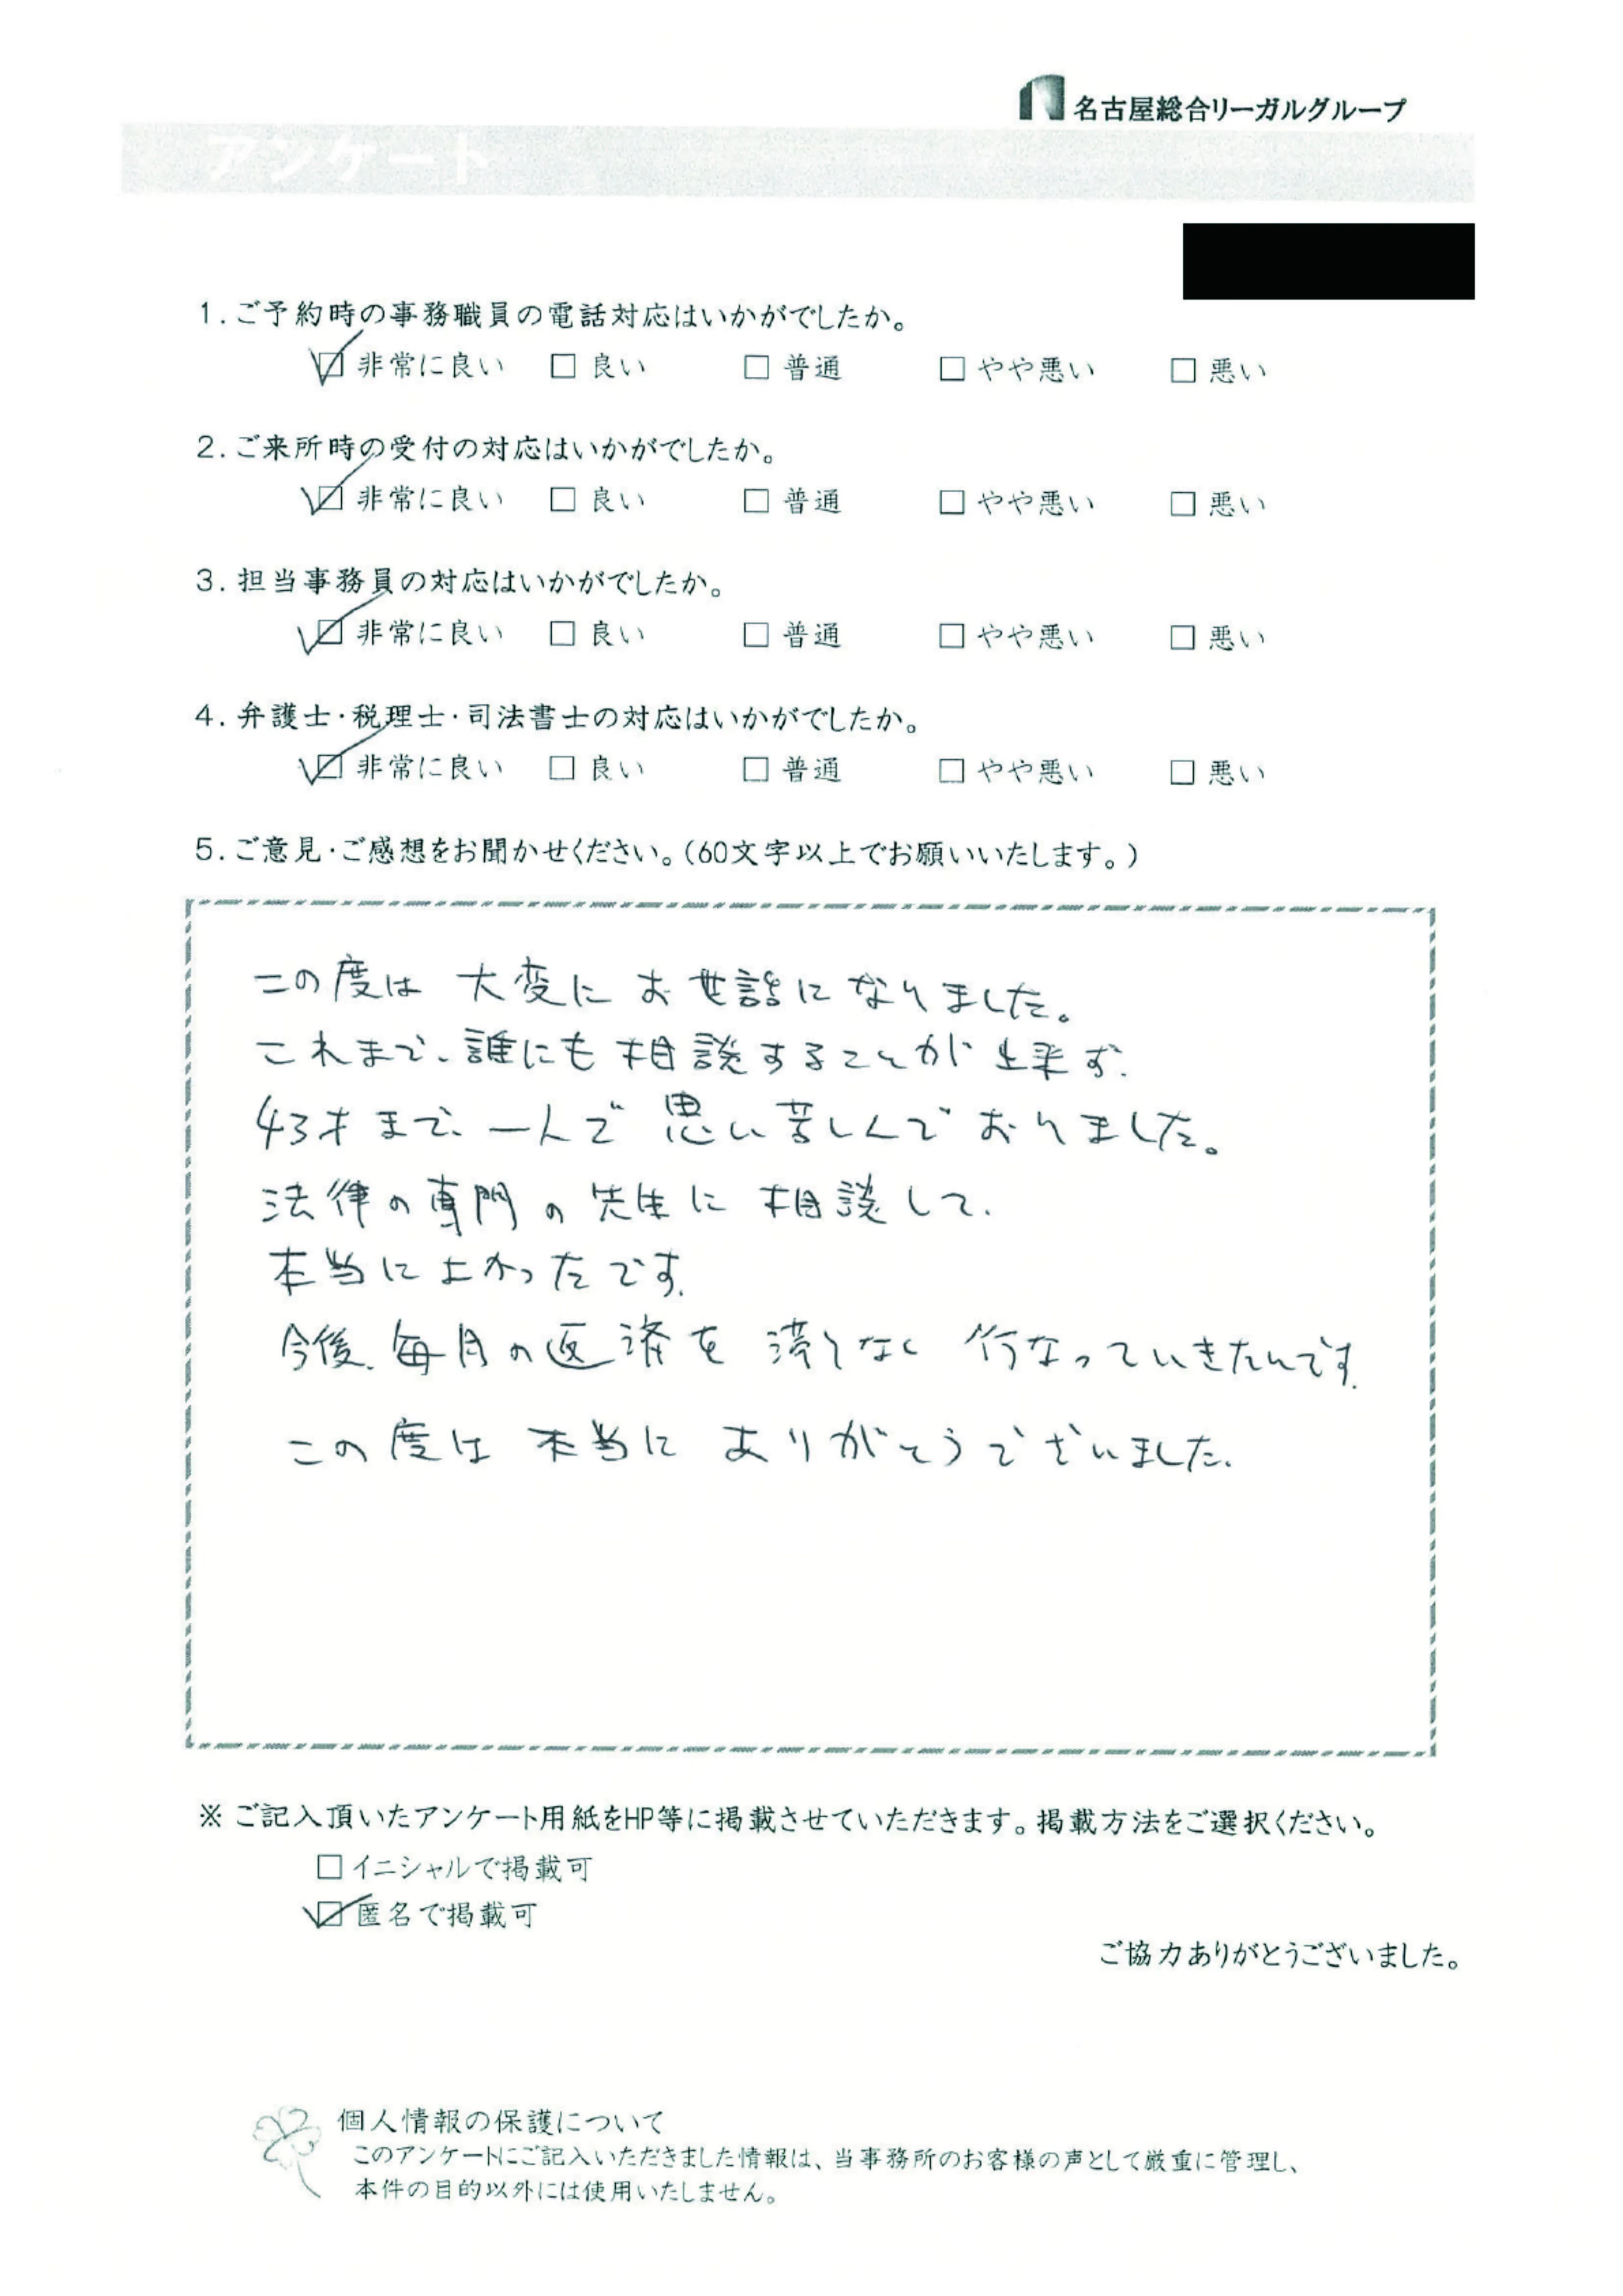 名古屋総合リーガルグループ
アンケート
1.ご予約時の事務職員の電話対応はいかがでしたか。
☑ 非常に良い □ 良い □ 普通 □ やや悪い □ 悪い
2.ご来所時の受付の対応はいかがでしたか。
☑ 非常に良い □ 良い □ 普通 □ やや悪い □ 悪い
3.担当事務員の対応はいかがでしたか。
☑ 非常に良い □ 良い □ 普通 □ やや悪い □ 悪い
4.弁護士・税理士・司法書士の対応はいかがでしたか。
☑ 非常に良い □ 良い □ 普通 □ やや悪い □ 悪い
5.ご意見・ご感想をお聞かせください。(60文字以上でお願いいたします。)
この度は 大変に お世話になりました。
これまで、誰にも相談することが出来ず、
43才まで、一人で思い苦しんでおりました。
法律の専門の先生に相談して、
本当によかったです。
今後、毎月の返済を滞りなく行なっていきたいです。
この度は本当にありがとうございました。
※ご記入頂いたアンケート用紙をHP等に掲載させていただきます。掲載方法をご選択ください。
□イニシャルで掲載可
☑匿名で掲載可
ご協力ありがとうございました。
個人情報の保護について
このアンケートにご記入いただきました情報は、当事務所のお客様の声として厳重に管理し、
本件の目的以外には使用いたしません。